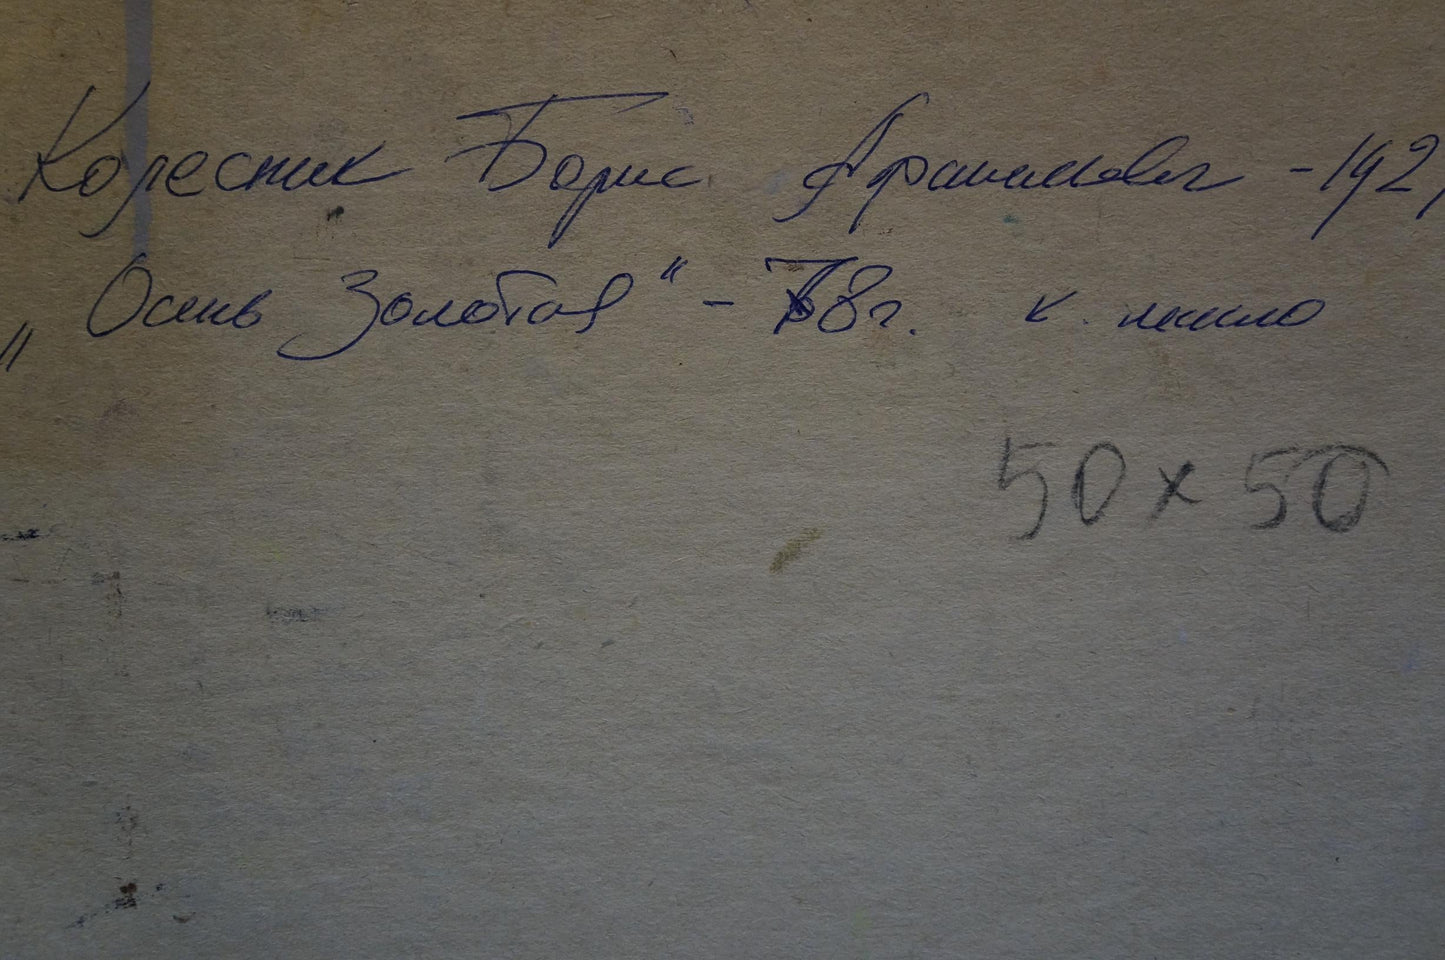 Колесник Борис -192
„Осень Золотая" - 78г. к. масло
50 х 50